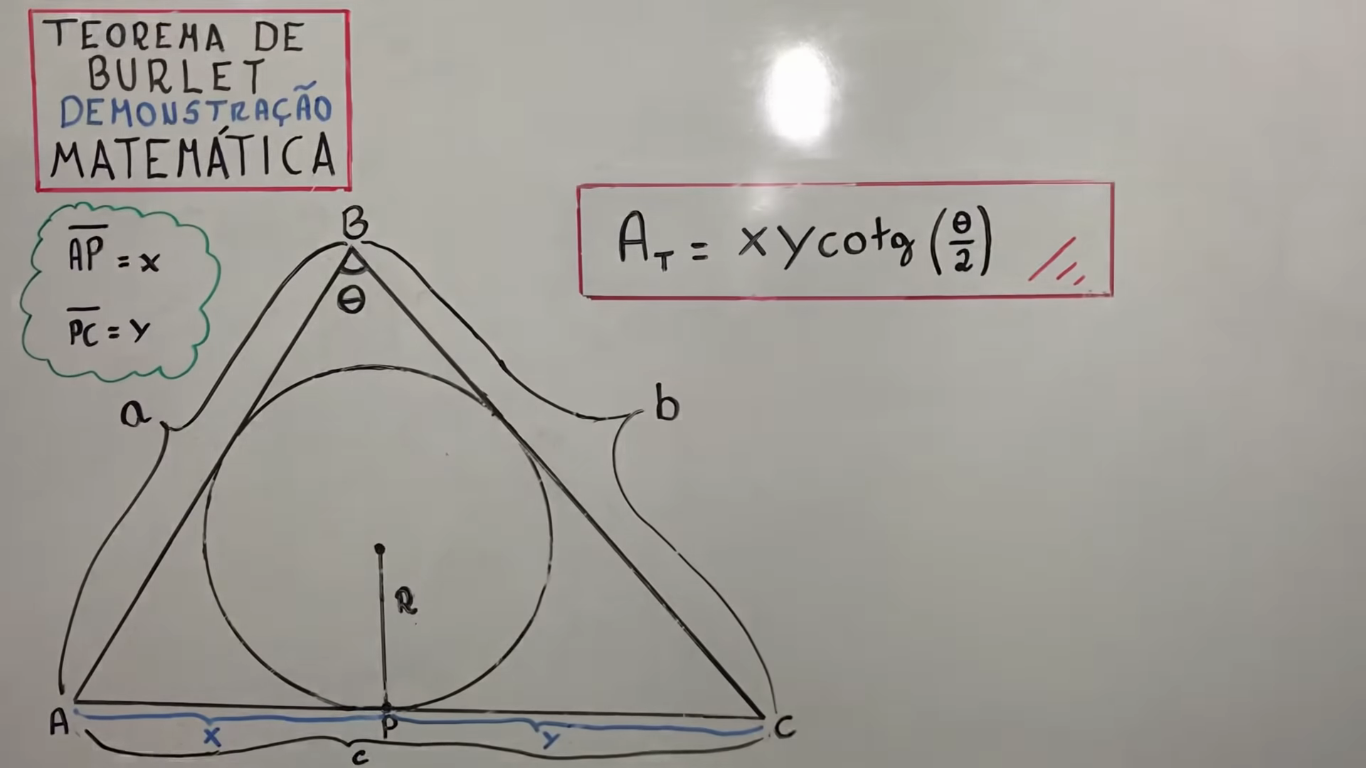 TEOREMA DE
BURLET
DEMONSTRAÇÃO
MATEMÁTICA
AP = x
PC = y
B
θ
A_T = x y cotg (θ/2)
a
b
R
A
P
C
x
y
c